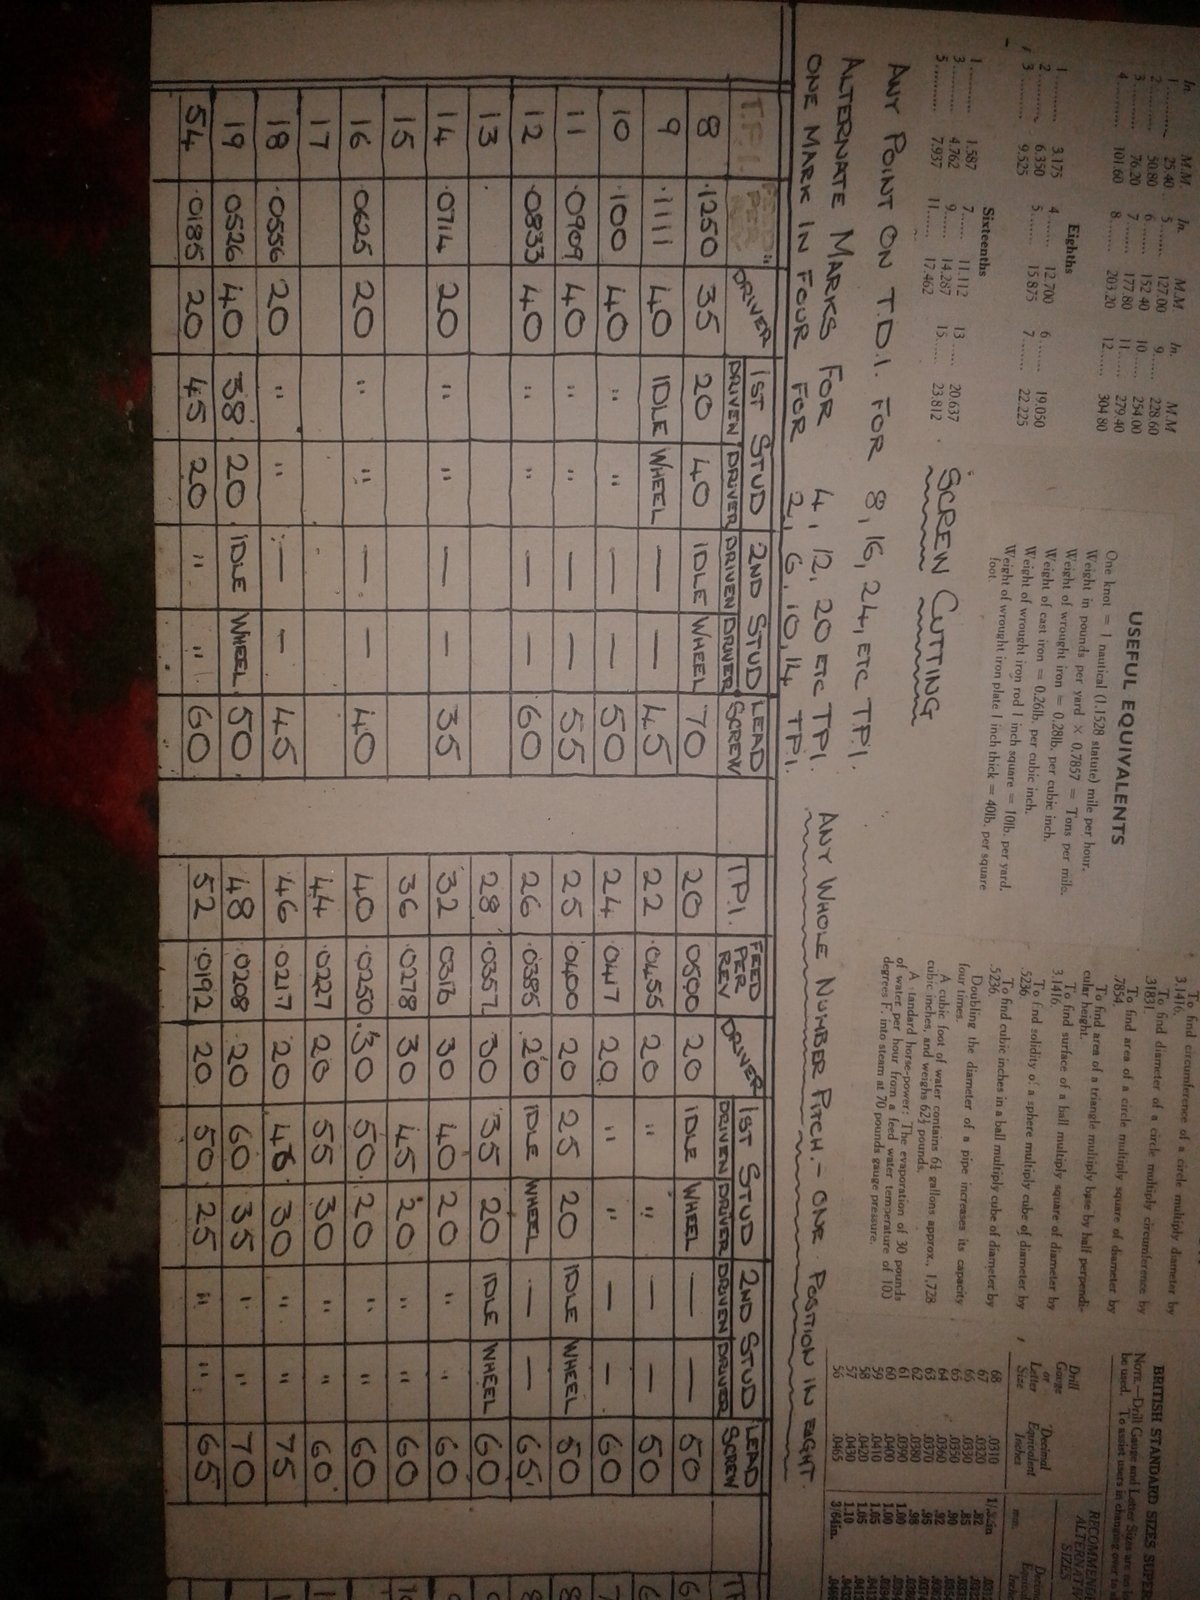 In. M.M. In. M.M. In. M.M
1 25.40 5 127.00 9 228.60
2 50.80 6 152.40 10 254.00
3 76.20 7 177.80 11 279.40
4 101.60 8 203.20 12 304.80
Eighths
1 3.175 4 12.700 6 19.050
2 6.350 5 15.875 7 22.225
3 9.525
Sixteenths
1 1.587 7 11.112 13 20.637
3 4.762 9 14.287 15 23.812
5 7.937 11 17.462
USEFUL EQUIVALENTS
One knot = 1 nautical (1.1528 statute) mile per hour.
Weight in pounds per yard × 0.7857 = Tons per mile.
Weight of wrought iron = 0.28lb. per cubic inch.
Weight of cast iron = 0.26lb. per cubic inch.
Weight of wrought iron rod 1 inch square = 10lb. per yard.
Weight of wrought iron plate 1 inch thick = 40lb. per square
foot.
To find circumference of a circle multiply diameter by
3.1416.
To find diameter of a circle multiply circumference by
.31831.
To find area of a circle multiply square of diameter by
.7854.
To find area of a triangle multiply base by half perpendi-
cular height.
To find surface of a ball multiply square of diameter by
3.1416.
To find solidity of a sphere multiply cube of diameter by
.5236.
To find cubic inches in a ball multiply cube of diameter by
.5236.
Doubling the diameter of a pipe increases its capacity
four times.
A cubic foot of water contains 6¼ gallons approx., 1,728
cubic inches, and weighs 62½ pounds.
A standard horse-power: The evaporation of 30 pounds
of water per hour from a feed water temperature of 100
degrees F. into steam at 70 pounds gauge pressure.
BRITISH STANDARD SIZES SUPER
NOTE.—Drill Gauge and Letter Sizes are no
be used. To assist users in changing over to
RECOMMENDE
ALTERNATIV
SIZES
Drill Gauge or Letter Size Decimal Equivalent Inches mm.
68 .0310 1/32in
67 .0320 .82
66 .0330 .85
65 .0350 .90
64 .0360 .92
63 .0370 .95
62 .0380 .98
61 .0390 1.00
60 .0400 1.00
59 .0410 1.05
58 .0420 1.05
57 .0430 1.10
56 .0465 3/64in.
SCREW CUTTING
ANY POINT ON T.D.I. FOR 8, 16, 24, ETC T.P.I.
ALTERNATE MARKS FOR 4, 12, 20 ETC TPI
ONE MARK IN FOUR FOR 2, 6, 10, 14 TPI.
ANY WHOLE NUMBER PITCH.- ONE POSITION IN EIGHT
T.P.I. FEED" PER REV DRIVER 1ST STUD DRIVEN DRIVER 2ND STUD DRIVEN DRIVER LEAD SCREW
8 .1250 35 20 40 IDLE WHEEL 70
9 .1111 40 IDLE WHEEL — — 45
10 .100 40 " " — — 50
11 .0909 40 " " — — 55
12 .0833 40 " " — — 60
13
14 .0714 20 " " — — 35
15
16 .0625 20 " " — — 40
17
18 .0556 20 " " — — 45
19 .0526 40 38 20 IDLE WHEEL 50
54 .0185 20 45 20 " " 60
T.P.I. FEED PER REV DRIVER 1ST STUD DRIVEN DRIVER 2ND STUD DRIVEN DRIVER LEAD SCREW
20 .0500 20 IDLE WHEEL — — 50
22 .0455 20 " " — — 50
24 .0417 20 " " — — 60
25 .0400 20 25 20 IDLE WHEEL 50
26 .0385 20 IDLE WHEEL — — 65
28 .0357 30 35 20 IDLE WHEEL 60
32 .0313 30 40 20 " " 60
36 .0278 30 45 20 " " 60
40 .0250 30 50 20 " " 60
44 .0227 20 55 30 " " 60
46 .0217 20 46 30 " " 75
48 .0208 20 60 35 " " 70
52 .0192 20 50 25 " " 65